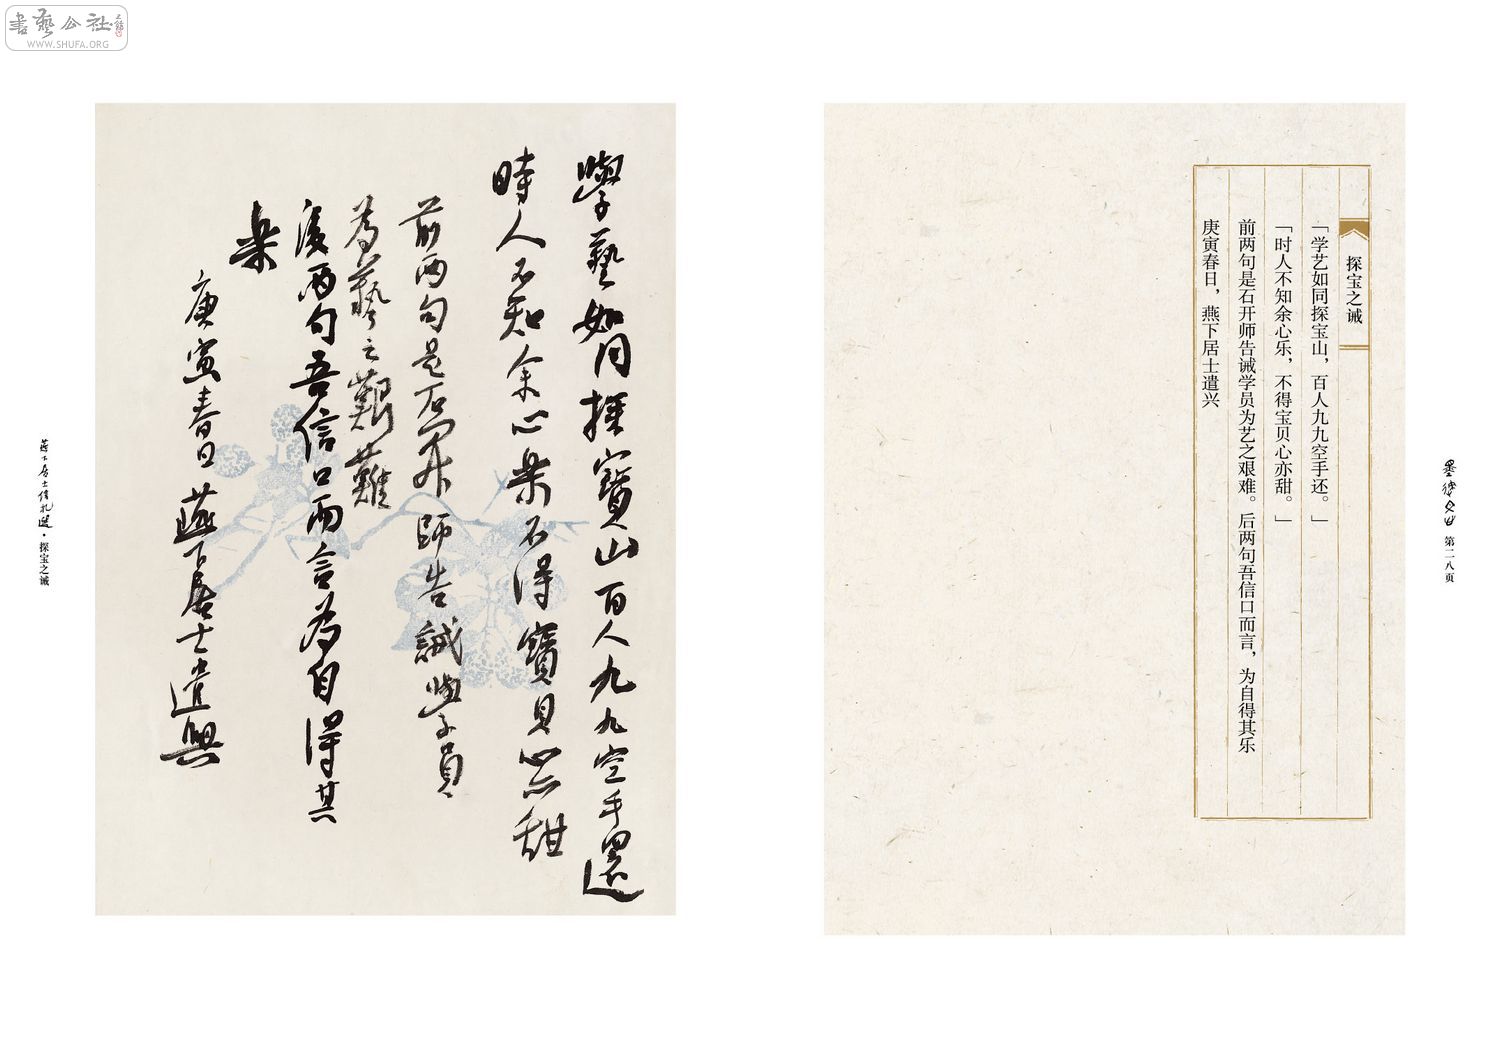 書藝公社
WWW.SHUFA.ORG
學藝如同探寶山百人九九空手還
時人不知余心樂不得寶貝心亦甜
前两句是石开師告誡學員
為藝之艱難
後两句吾信口而言為自得其
樂
庚寅春日燕下居士遣興
燕下居士信札選·探宝之诫
探宝之诫
「学艺如同探宝山，百人九九空手还。」
「时人不知余心乐，不得宝贝心亦甜。」
前两句是石开师告诫学员为艺之艰难。后两句吾信口而言，为自得其乐
庚寅春日，燕下居士遣兴
第二八页